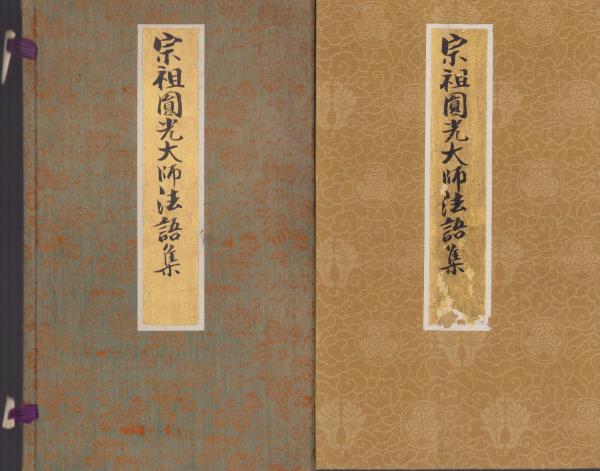 宗祖圓光大师法語集
宗祖圓光大师法語集